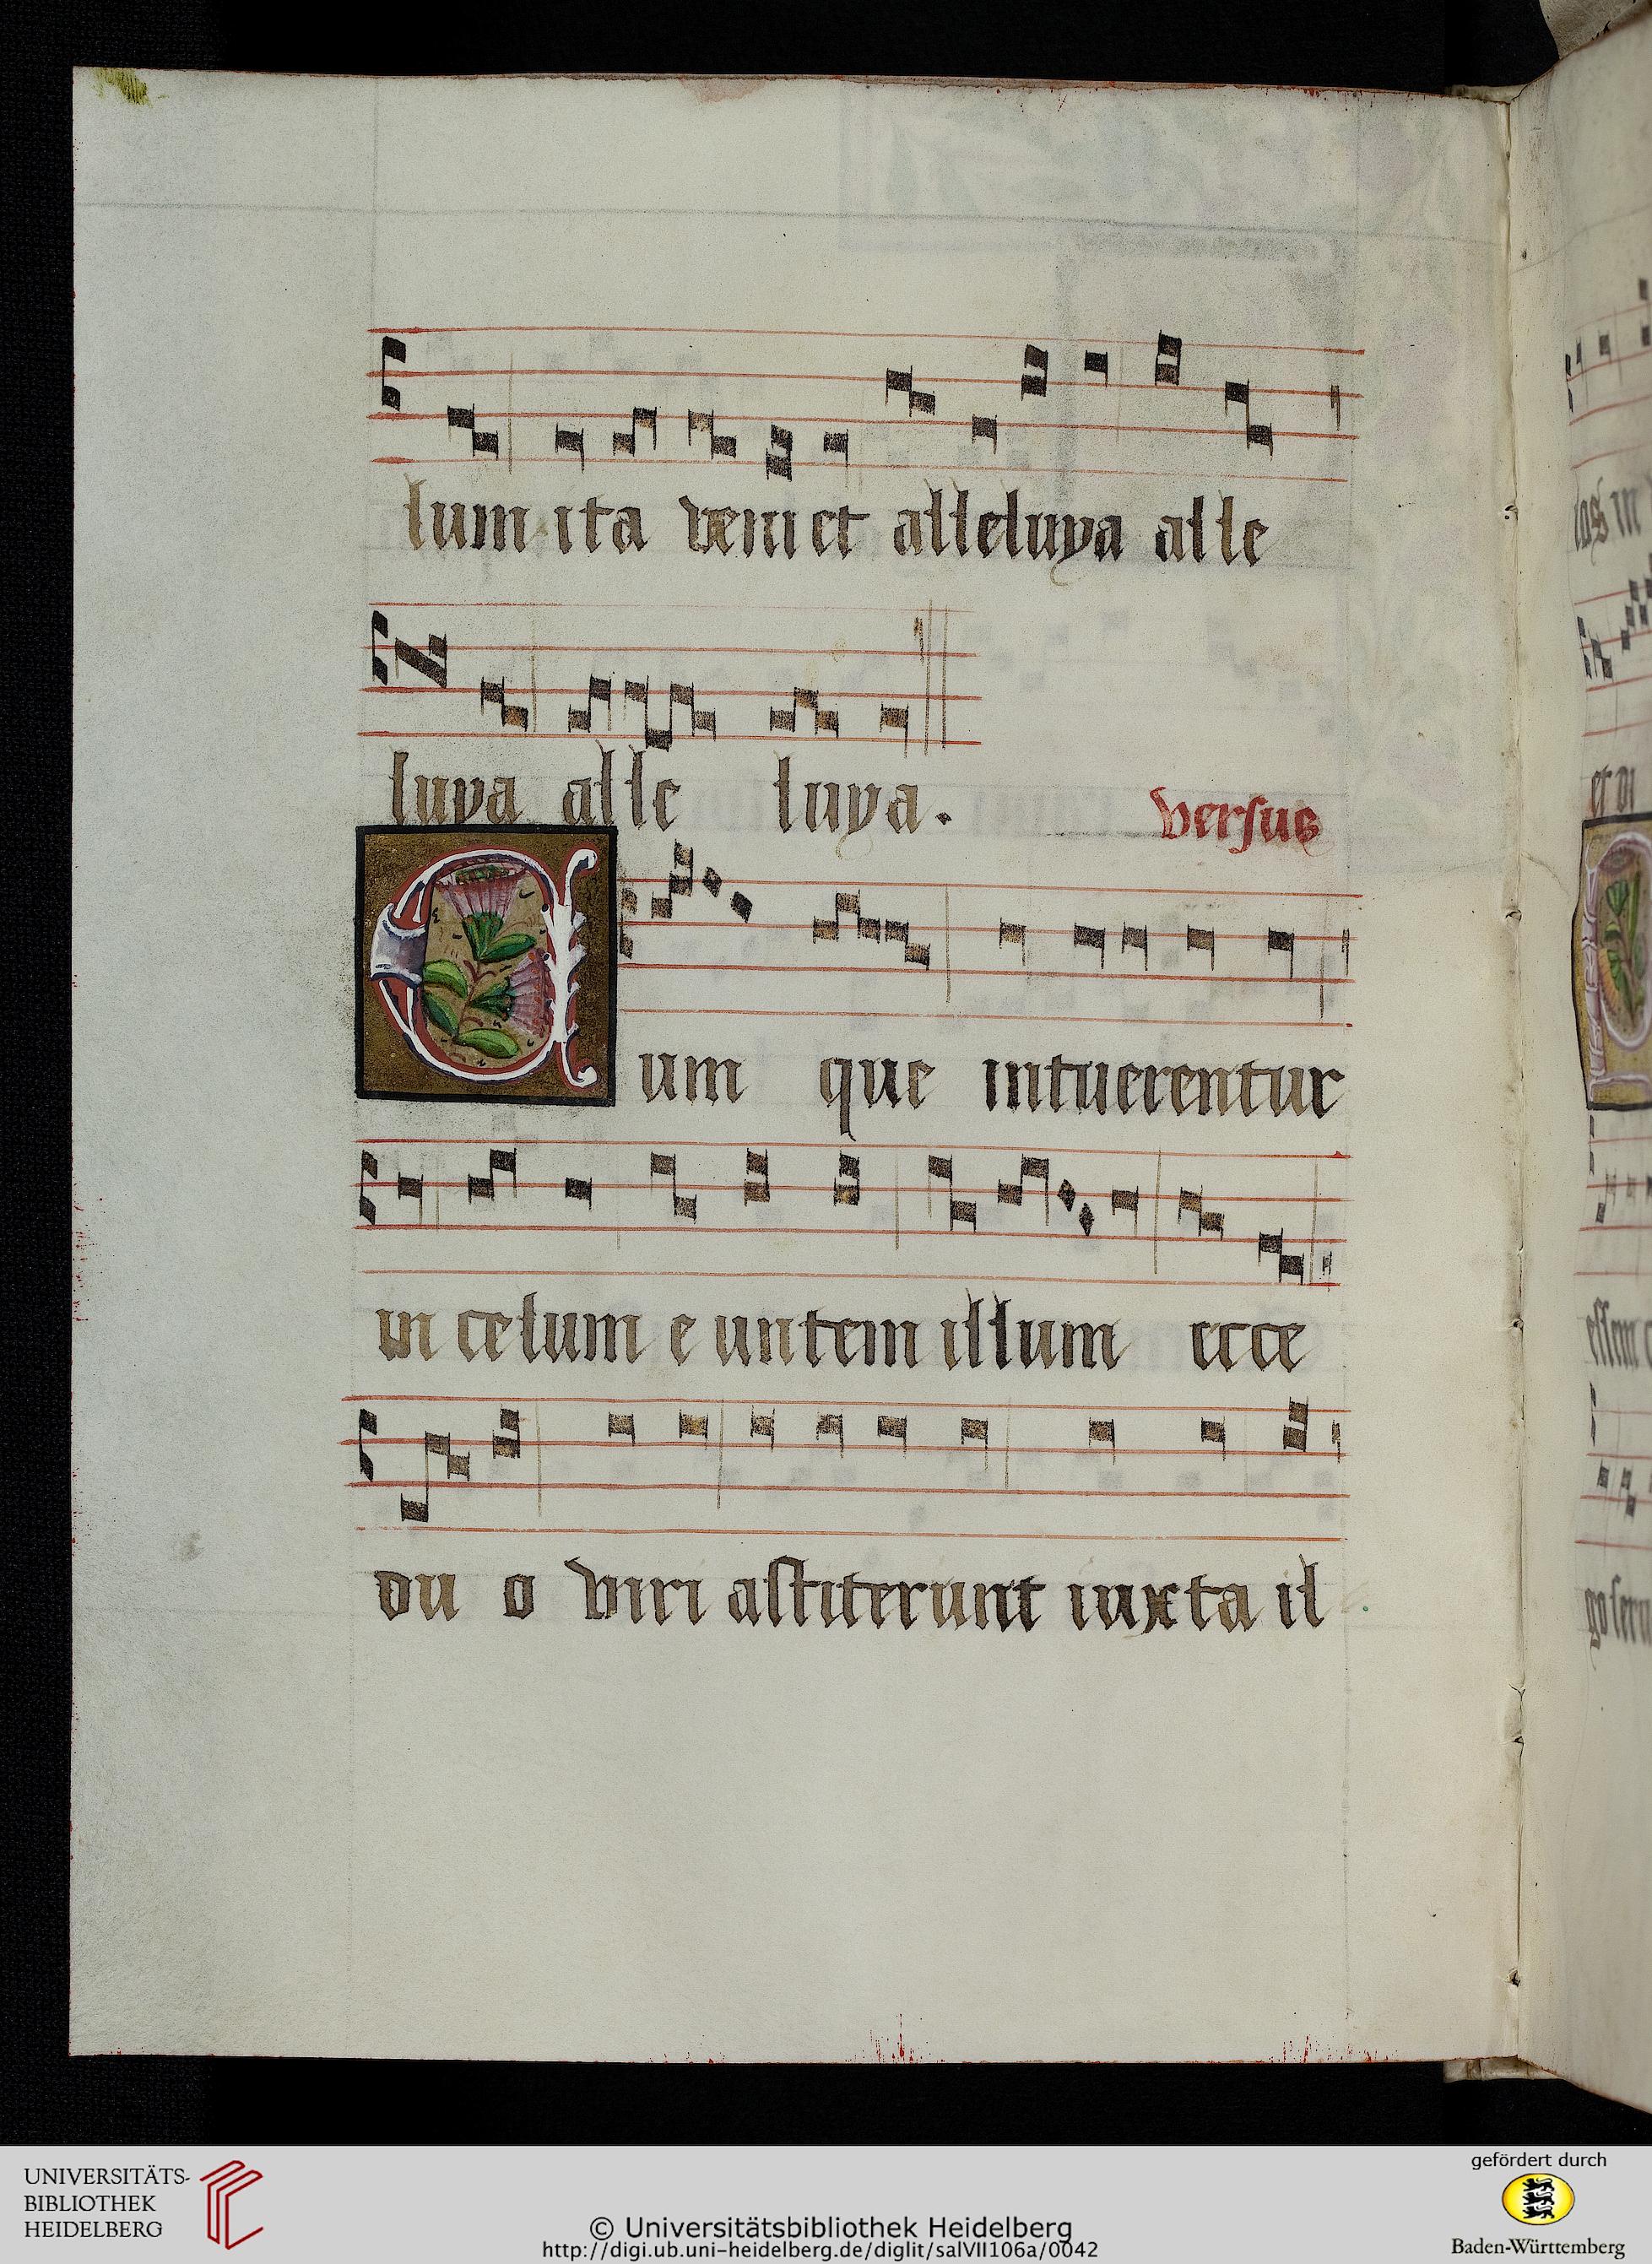 lum ita veniet alleluya alle
luya alle luya.
versus
Cum que intuerentur
in celum e untem illum ecce
du o viri astiterunt iuxta il
et di
UNIVERSITÄTS-
BIBLIOTHEK
HEIDELBERG
© Universitätsbibliothek Heidelberg
http://digi.ub.uni-heidelberg.de/diglit/salVII106a/0042
gefördert durch
Baden-Württemberg